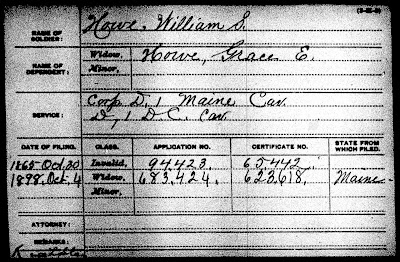 NAME OF SOLDIER: Howe, William S.
NAME OF DEPENDENT: Widow, Howe, Grace E.
Minor,
SERVICE: Corp D, 1 Maine Cav.
D, 1 D C. Cav
DATE OF FILING. CLASS. APPLICATION NO. CERTIFICATE NO. STATE FROM WHICH FILED.
1865 Oct, 30 Invalid, 94423. 65442.
1898, Oct. 4 Widow, 683,424. 623,618, Maine
Minor,
ATTORNEY:
REMARKS: